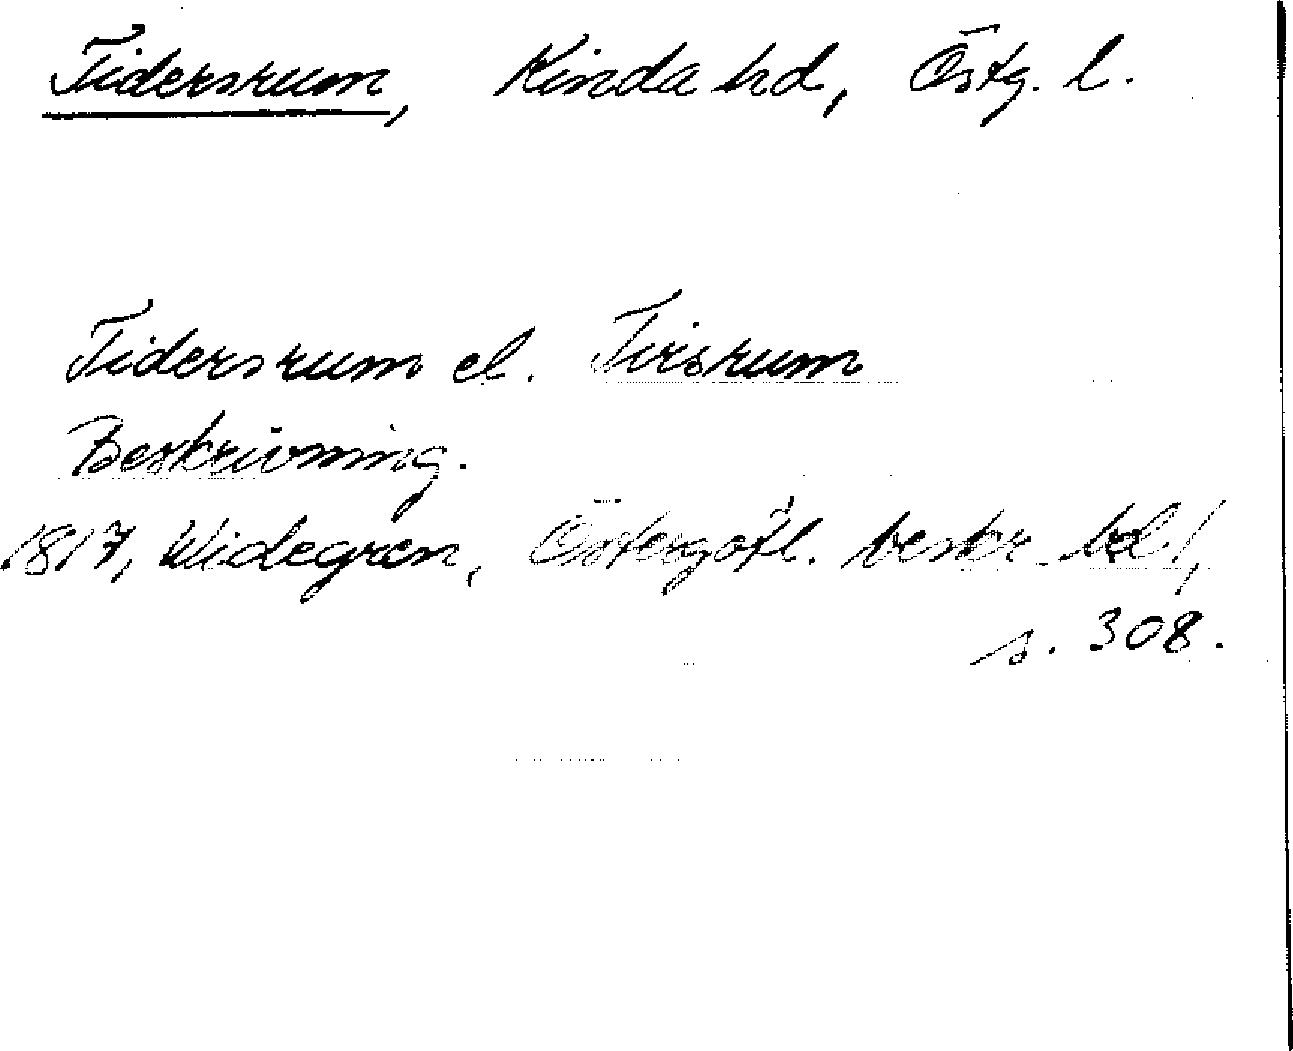 Tidersrum, Kinda hd, Östg. l.
Tidersrum el. Tirsrum
Beskrivning.
1817, Widegren, Östergötl. beskr. bd 1,
s. 308.